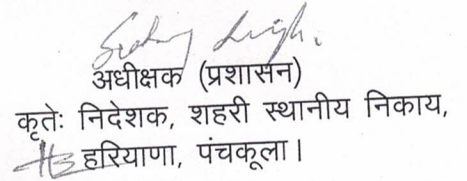 अधीक्षक (प्रशासन)
कृतेः निदेशक, शहरी स्थानीय निकाय,
हरियाणा, पंचकूला।